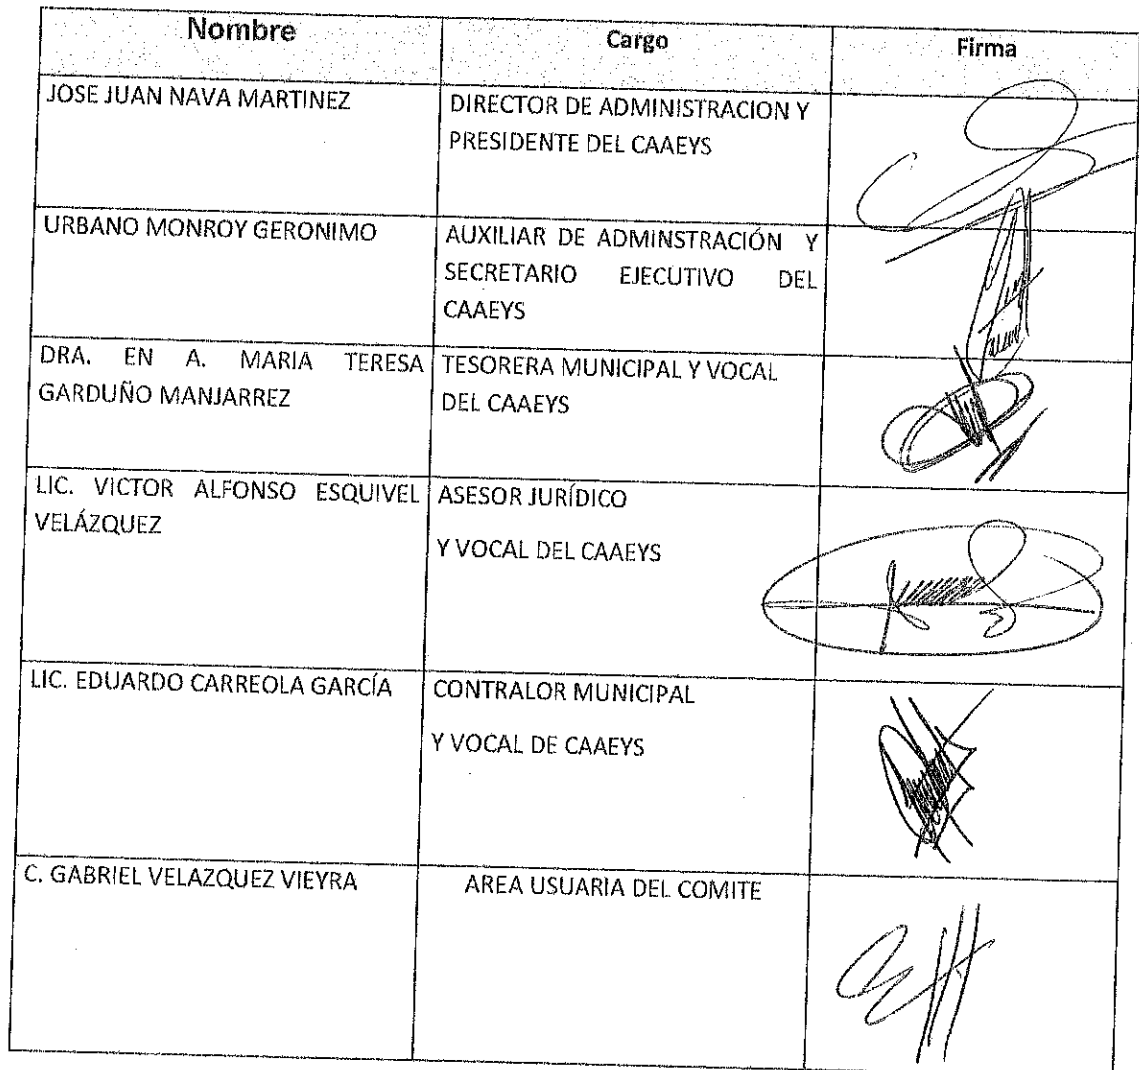 Nombre Cargo Firma
JOSE JUAN NAVA MARTINEZ DIRECTOR DE ADMINISTRACION Y
PRESIDENTE DEL CAAEYS
URBANO MONROY GERONIMO AUXILIAR DE ADMINSTRACIÓN Y
SECRETARIO EJECUTIVO DEL
CAAEYS
DRA. EN A. MARIA TERESA TESORERA MUNICIPAL Y VOCAL
GARDUÑO MANJARREZ DEL CAAEYS
LIC. VICTOR ALFONSO ESQUIVEL ASESOR JURÍDICO
VELÁZQUEZ
Y VOCAL DEL CAAEYS
LIC. EDUARDO CARREOLA GARCÍA CONTRALOR MUNICIPAL
Y VOCAL DE CAAEYS
C. GABRIEL VELAZQUEZ VIEYRA AREA USUARIA DEL COMITE